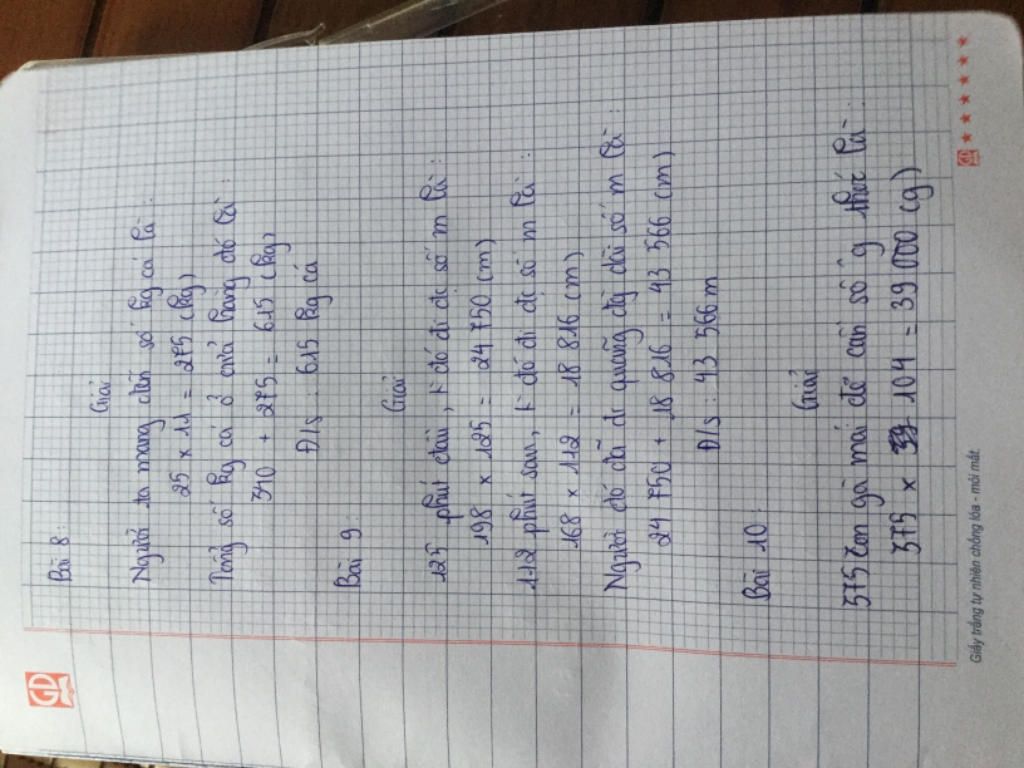 GD
Bài 8:
Giải
Người ta mang đến số kg cá là:
25 x 11 = 275 (kg)
Tổng số kg cá ở cửa hàng đó là:
340 + 275 = 615 (kg)
Đ/s: 615 kg cá
Bài 9
Giải
125 phút đầu, đó đi đc số m là:
198 x 125 = 24 750 (m)
112 phút sau, đó đi đc số m là:
168 x 112 = 18 816 (m)
Người đó đã đi quãng đg dài số m là:
24 750 + 18 816 = 43 566 (m)
Đ/s: 43 566 m
Bài 10:
Giải
375 con gà mái đẻ cần số g thóc là:
375 x 104 = 39 000 (g)
Giấy trắng tự nhiên chống lóa - mỏi mắt.
GD